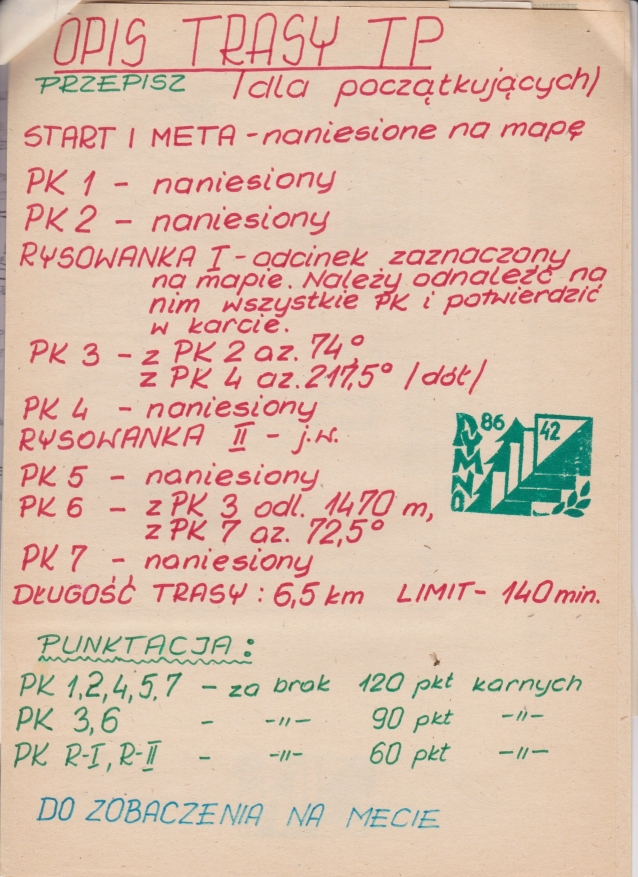 OPIS TRASY TP
PRZEPISZ /dla początkujących/
START I META - naniesione na mapę
PK 1 - naniesiony
PK 2 - naniesiony
RYSOWANKA I - odcinek zaznaczony
na mapie. Należy odnaleźć na
nim wszystkie PK i potwierdzić
w karcie.
PK 3 - z PK 2 az. 74°
z PK 4 az. 217,5° /dół/
PK 4 - naniesiony
RYSOWANKA II - j.w.
PK 5 - naniesiony
PK 6 - z PK 3 odl. 1470 m,
z PK 7 az. 72,5°
PK 7 - naniesiony
DŁUGOŚĆ TRASY : 6,5 km LIMIT - 140 min.
RYMNO 86 42
PUNKTACJA :
PK 1,2,4,5,7 - za brak 120 pkt karnych
PK 3,6 - -"- 90 pkt -"-
PK R-I, R-II - -"- 60 pkt -"-
DO ZOBACZENIA NA MECIE